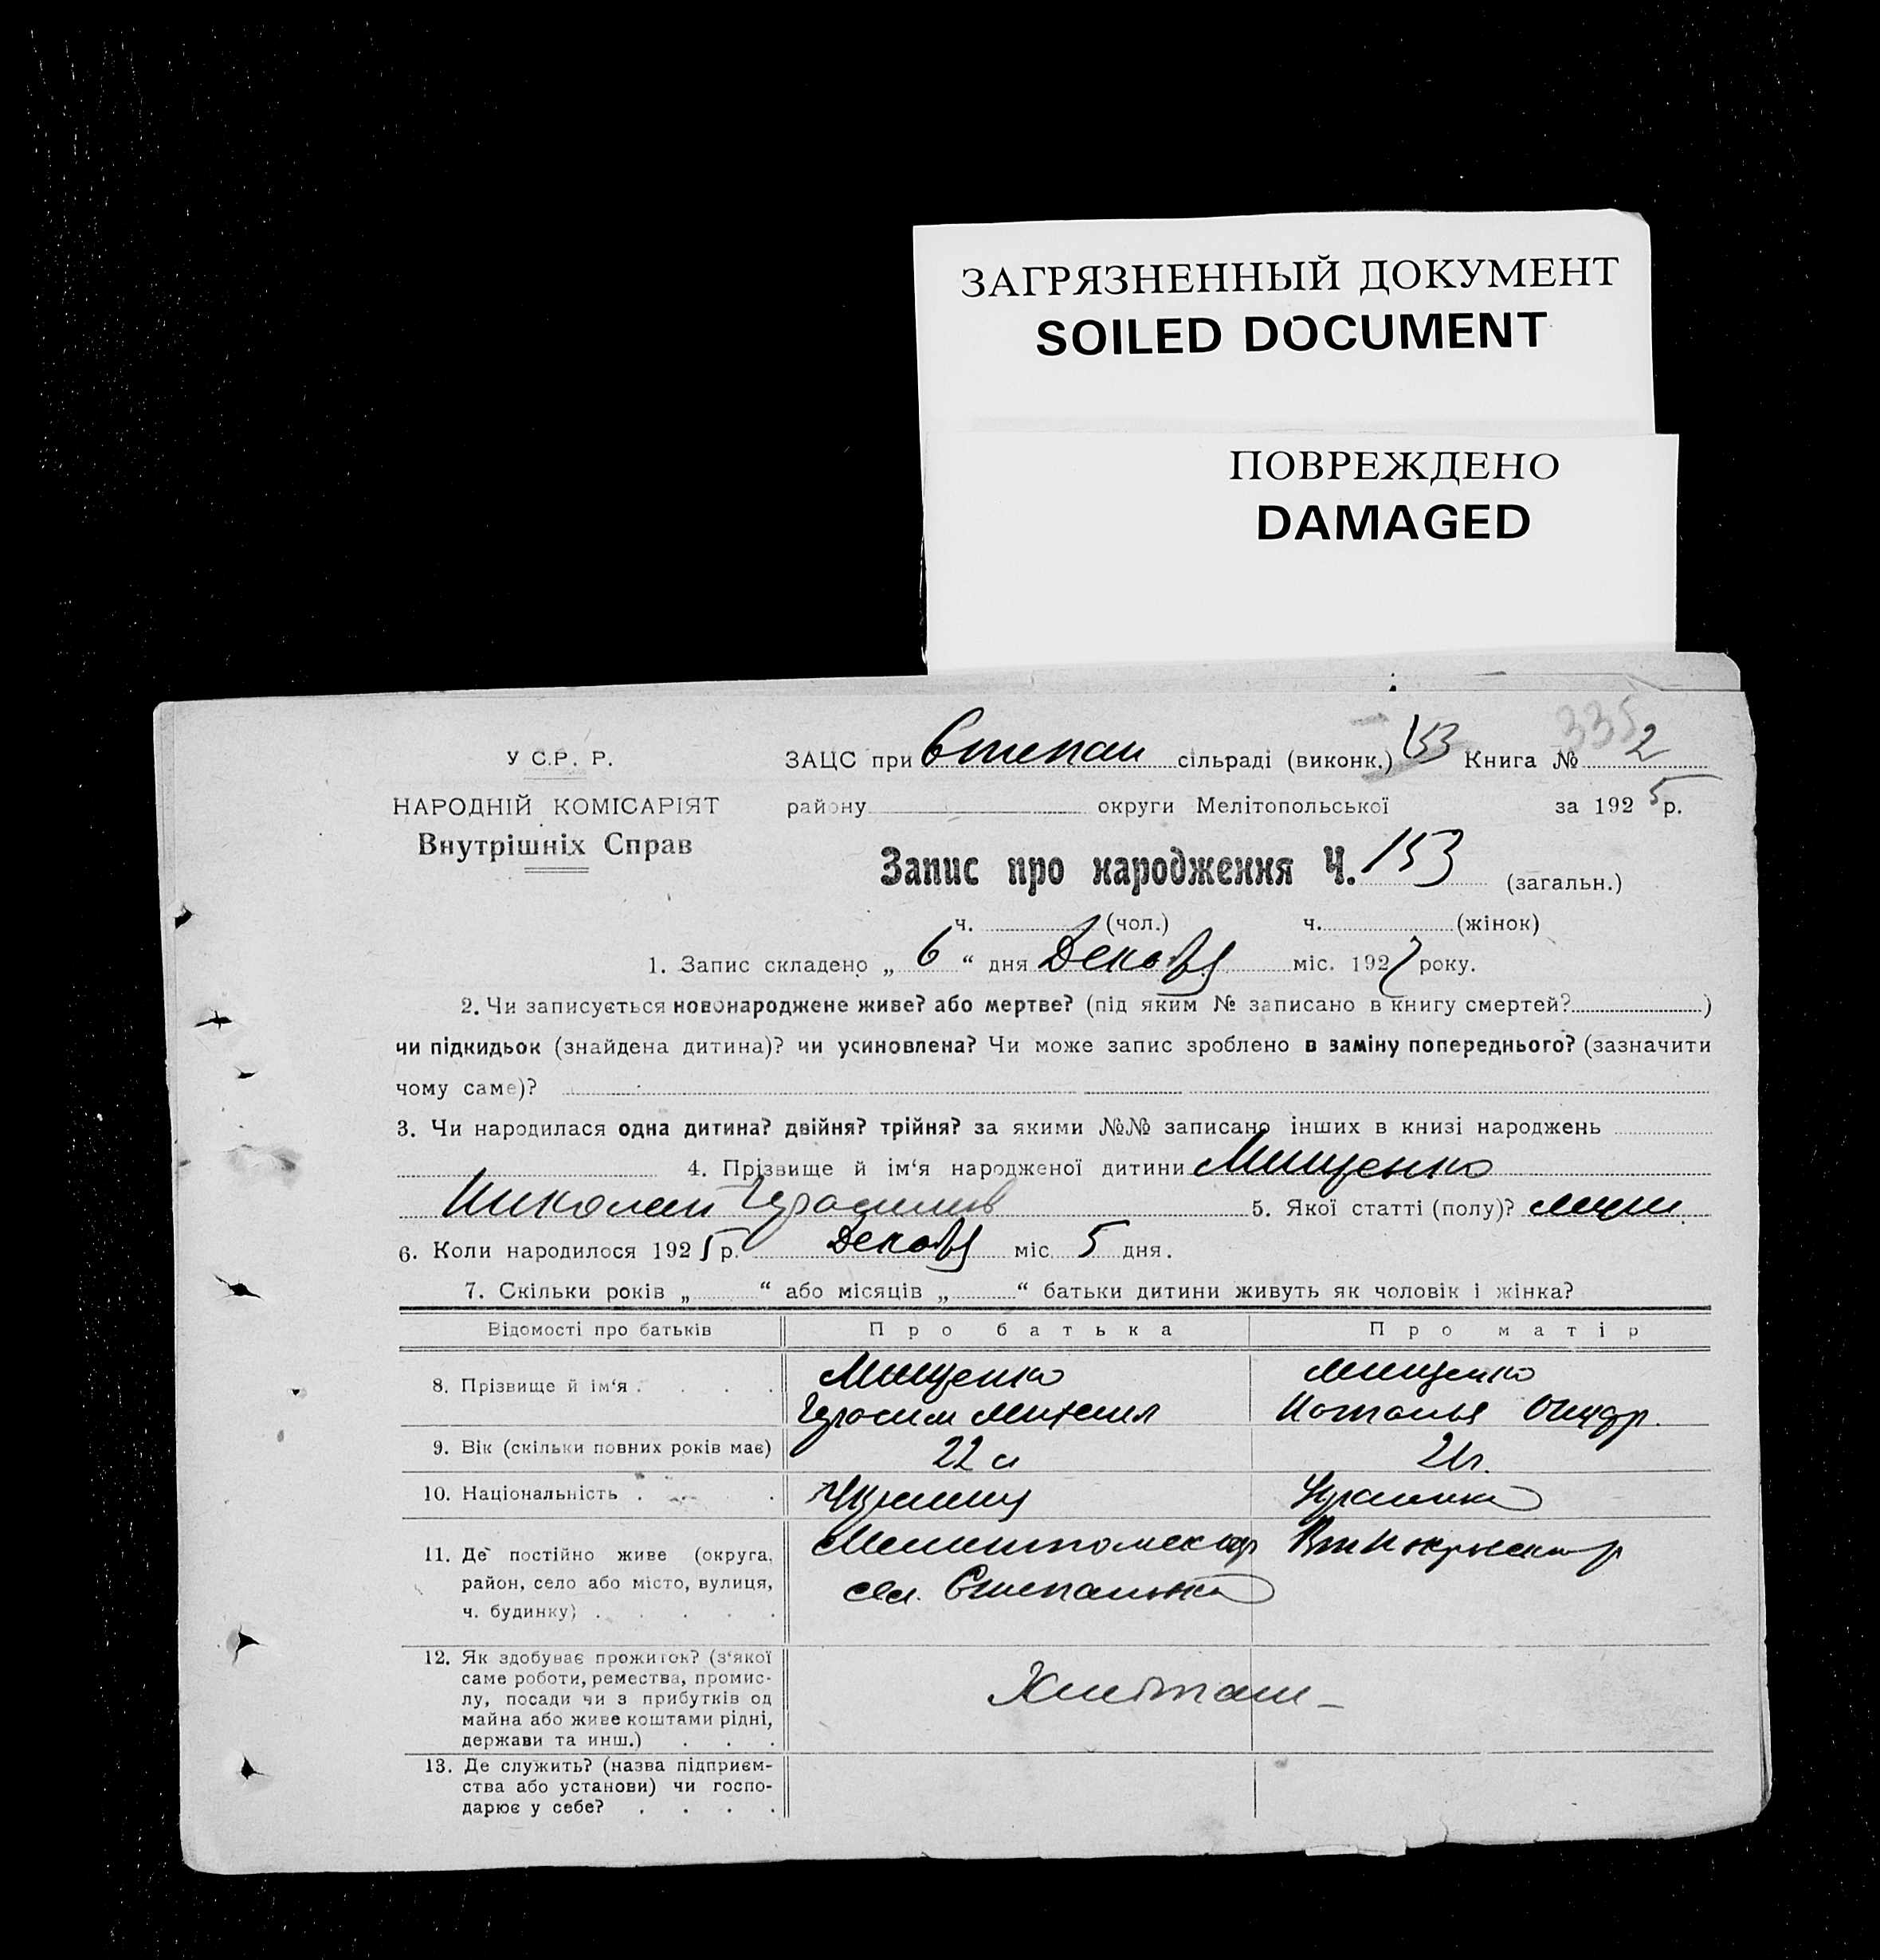 ЗАГРЯЗНЕННЫЙ ДОКУМЕНТ
SOILED DOCUMENT
ПОВРЕЖДЕНО
DAMAGED
335
У С.Р. Р.
ЗАЦС при Степан сільраді (виконк.) 153 Книга № 2
НАРОДНІЙ КОМІСАРІЯТ
району округи Мелітопольської за 1925 р.
Внутрішніх Справ
Запис про народження Ч. 153 (загальн.)
ч. (чол.) ч. (жінок)
1. Запис складено „ 6 “ дня міс. 192 року.
2. Чи записується новонароджене живе? або мертве? (під яким № записано в книгу смертей? )
чи підкидьок (знайдена дитина)? чи усиновлена? Чи може запис зроблено в заміну попереднього? (зазначити
чому саме)?
3. Чи народилася одна дитина? двійня? трійня? за якими №№ записано інших в книзі народжень
4. Прізвище й ім‘я народженої дитини Мищенко
Николай 5. Якої статті (полу)?
6. Коли народилося 1925 р. міс. 5 дня.
7. Скільки років „ “ або місяців „ “ батьки дитини живуть як чоловік і жінка?
Відомості про батьків Про батька Про матір
8. Прізвище й ім‘я . . . . Мищенко Мищенко
Герасим Наталья
9. Вік (скільки повних років має) 22 21
10. Національність . . .
11. Де постійно живе (округа,
район, село або місто, вулиця, сел. Степановка
ч. будинку) . . . . .
12. Як здобуває прожиток? (з‘якої
саме роботи, ремества, промис-
лу, посади чи з прибутків од
майна або живе коштами рідні,
держави та инш.) . . .
13. Де служить? (назва підприєм-
ства або установи) чи госпо-
дарює у себе? . . . .